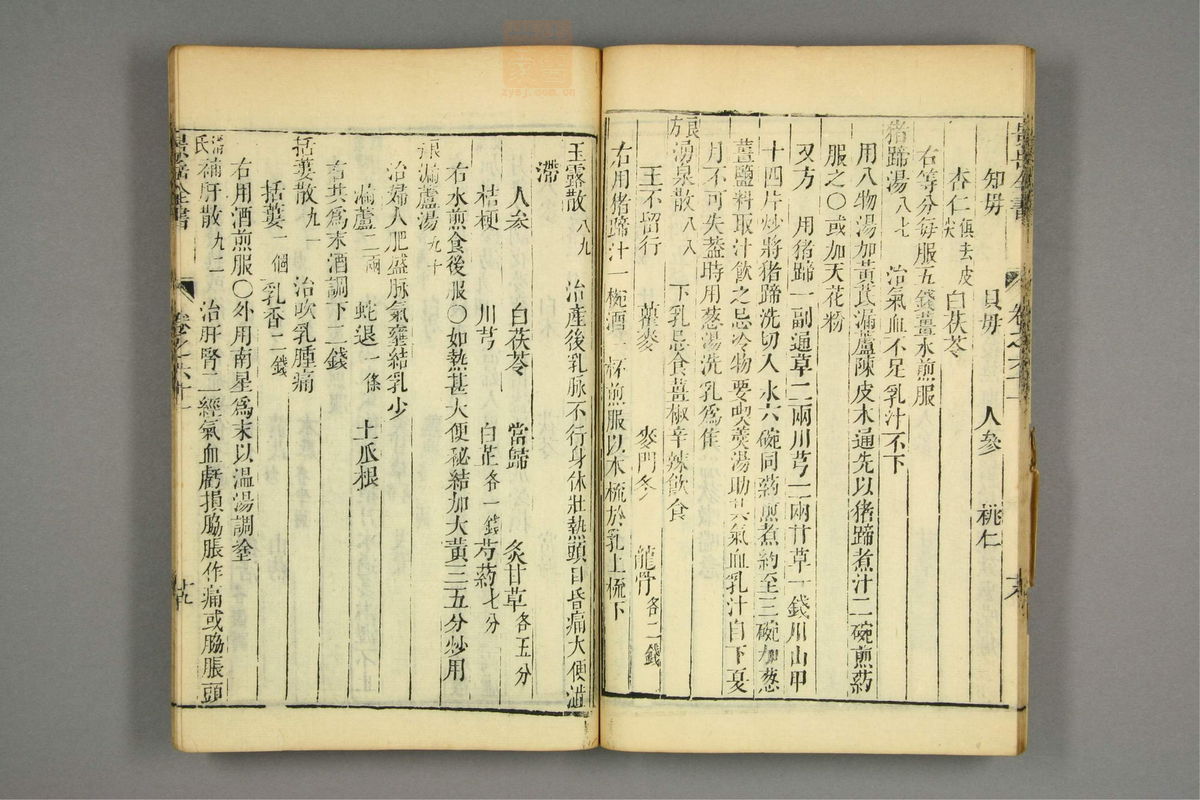 知母 貝母 人參 桃仁
杏仁俱去皮尖 白茯苓
右等分每服五錢薑水煎服
猪蹄湯八七 治氣血不足乳汁不下
用八物湯加黃芪漏蘆陳皮木通先以猪蹄煮汁二碗煎藥
服之〇或加天花粉
又方 用猪蹄一副通草二兩川芎一兩甘草一錢川山甲
十四片炒將猪蹄洗切入水六碗同藥煎煮約至三碗加葱
薑鹽料取汁飲之忌冷物要喫羮湯助其氣血乳汁自下夏
月不可失蓋時用葱湯洗乳爲佳
良方湧泉散八八 下乳忌食薑椒辛辣飲食
王不留行 瞿麥 麥門冬 龍骨各二錢
右用猪蹄汁一椀酒一杯煎服以木梳於乳上梳下
景岳全書 卷之六十一
玉露散八九 治產後乳脉不行身体壯熱頭目昏痛大便澁
滯
人參 白茯苓 當歸 炙甘草各五分
桔梗 川芎 白芷各一錢 芍藥七分
右水煎食後服〇如熱甚大便秘結加大黃三五分炒用
良方漏蘆湯九十
治婦人肥盛脉氣壅結乳少
漏蘆二兩 蛇退一條 土瓜根
右共爲末酒調下二錢
括蔞散九一 治吹乳腫痛
括蔞一個 乳香二錢
右用酒煎服〇外用南星爲末以温湯調塗
補肝散九二 治肝腎二經氣血虧損脇脹作痛或脇脹頭
景岳全書 卷之六十一
zysj.com.cn